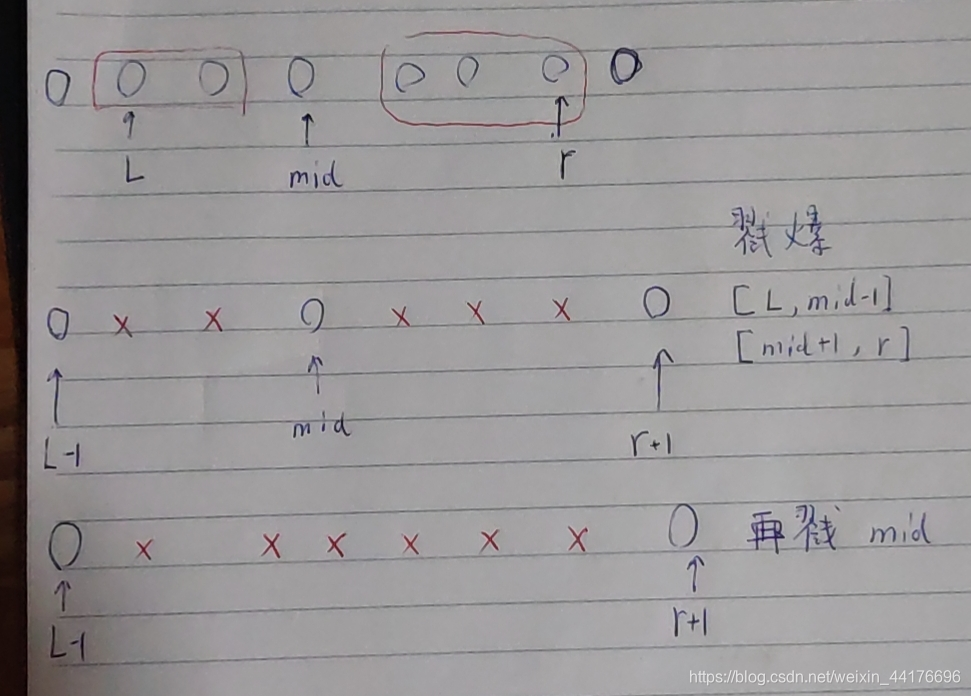 L
mid
r
戳爆
[L,mid-1]
[mid+1,r]
mid
L-1
r+1
再戳 mid
r+1
L-1
https://blog.csdn.net/weixin_44176696